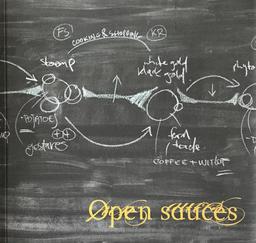 FS
COOKING & SHOPPING
KR
stoemp
white gold
black gold
phyto
POTATOE
gestures
food
trade
COFFEE + WITLOF
Open sauces